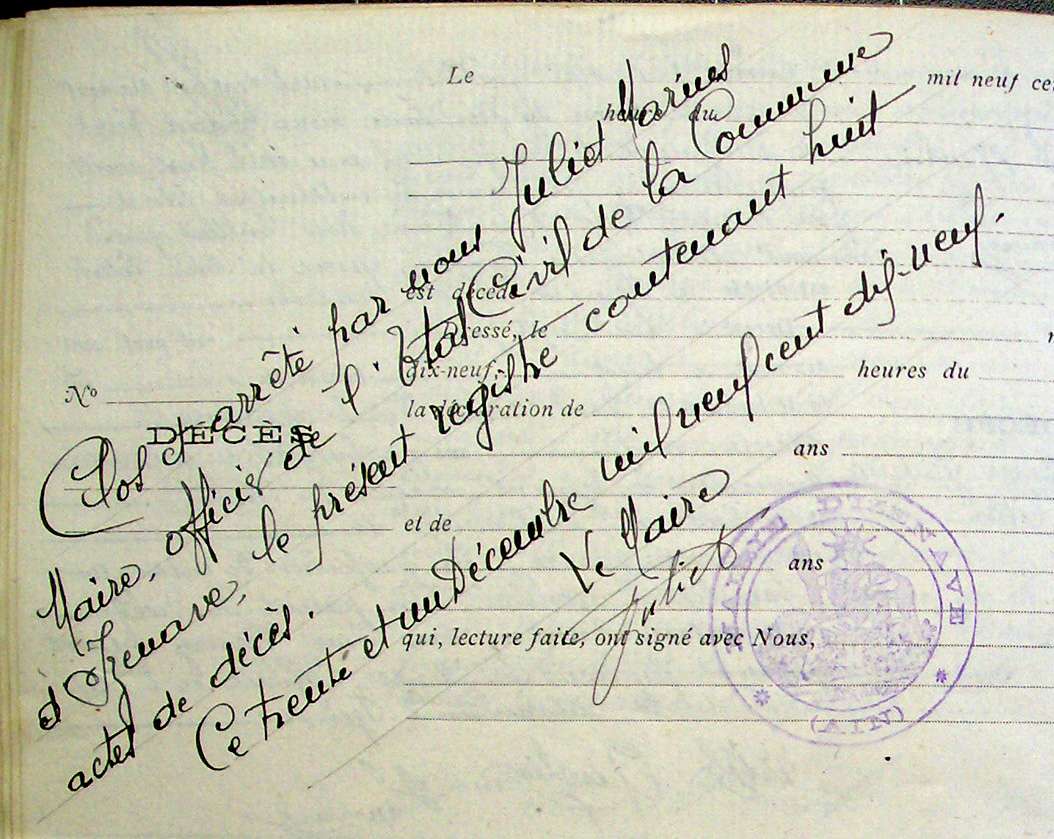 Le mil neuf ce
heure du
est décédé
Dressé, le
dix-neuf
heures du
No
la déclaration de
DÉCÈS
ans
et de
ans
qui, lecture faite, ont signé avec Nous,
Clos et arrêté par nous Juliet Marius
Maire, officier de l'Etat Civil de la Commune
d'Izenave, le présent registre contenant huit
actes de décès.
Ce trente et un Décembre mil neuf cent dix-neuf.
Le Maire
Juliet
MAIRIE D'IZENAVE
(AIN)